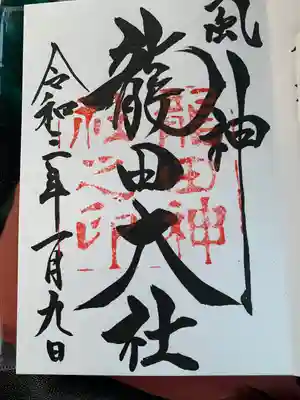 風神
龍田大社
龍田神
社之印
令和二年一月九日